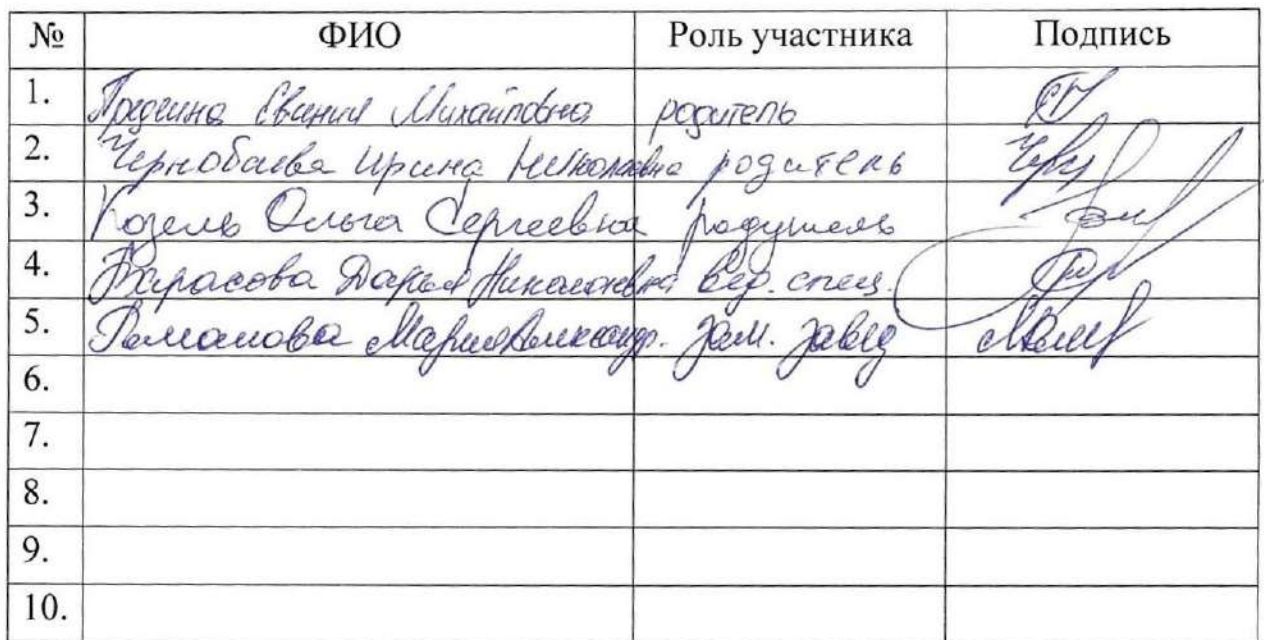 № ФИО Роль участника Подпись
1. Михайловна родитель
2. Чернобаева Ирина Николаевна родитель
3. Козель Ольга Сергеевна родитель
4. Тарасова Дарья Николаевна вед. спец.
5. Романова Мария Александр. зам. завед
6.
7.
8.
9.
10.